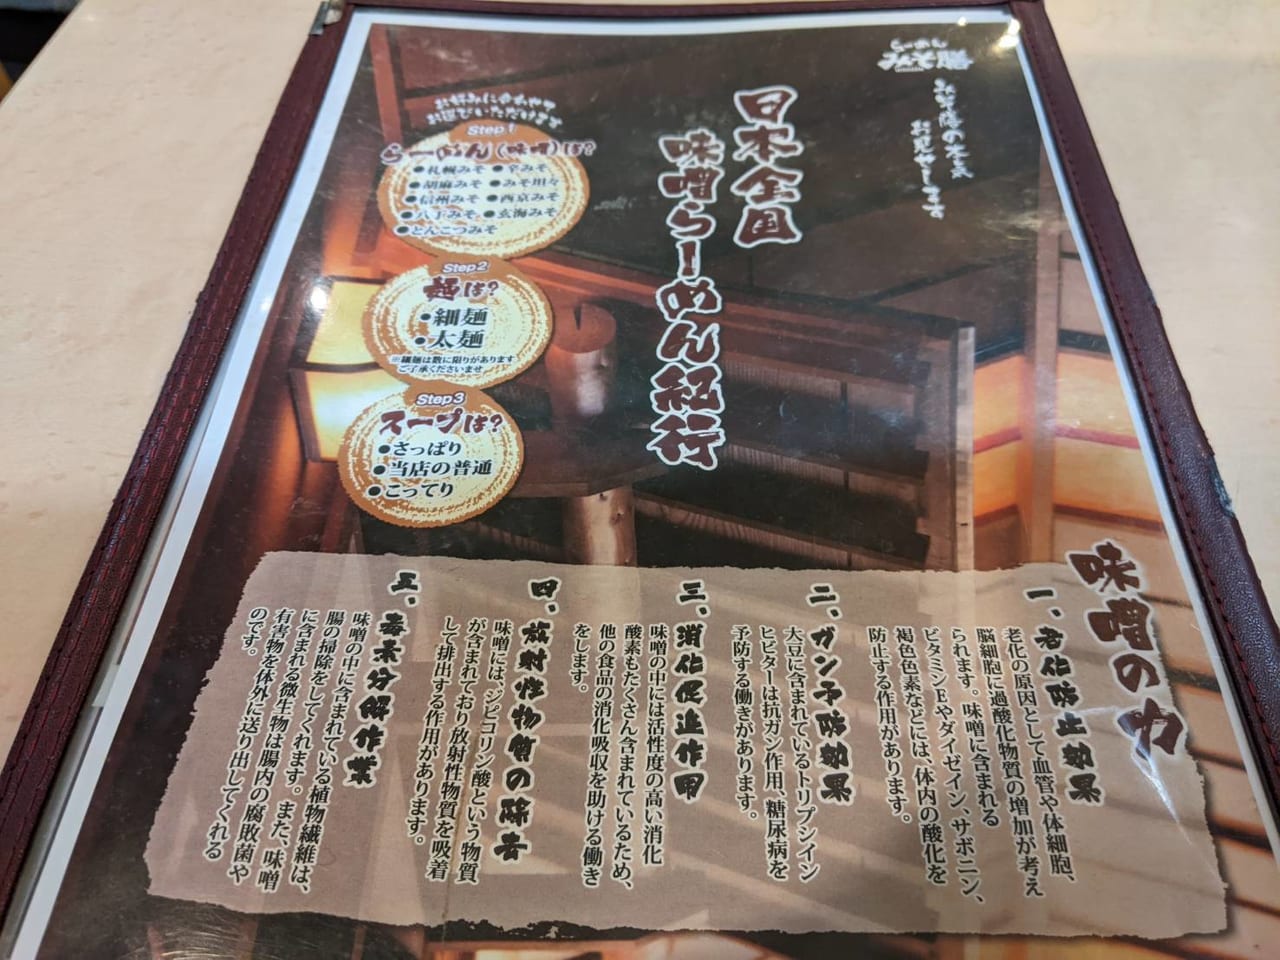 らーめん
みそ膳
みそ膳の本気
お見せします
日本全国
味噌らーめん紀行
お好みに合わせて
お選びいただけます
Step1
らーめん(味噌)は?
●札幌みそ ●辛みそ
●胡麻みそ ●みそ坦々
●信州みそ ●西京みそ
●八丁みそ ●玄海みそ
●とんこつみそ
Step2
麺は?
●細麺
●太麺
※細麺は数に限りがあります
ご了承くださいませ
Step3
スープは?
●さっぱり
●当店の普通
●こってり
味噌の力
一、老化防止効果
老化の原因として血管や体細胞、
脳細胞に過酸化物質の増加が考え
られます。味噌に含まれる
ビタミンEやダイゼイン、サポニン、
褐色色素などには、体内の酸化を
防止する作用があります。
二、ガン予防効果
大豆に含まれているトリプシンイン
ヒビターは抗ガン作用、糖尿病を
予防する働きがあります。
三、消化促進作用
味噌の中には活性度の高い消化
酵素もたくさん含まれているため、
他の食品の消化吸収を助ける働き
をします。
四、放射性物質の除去
味噌には、ジピコリン酸という物質
が含まれており放射性物質を吸着
して排出する作用があります。
五、毒素分解作業
味噌の中に含まれている植物繊維は、
腸の掃除をしてくれます。また、味噌
に含まれる微生物は腸内の腐敗菌や
有害物を体外に送り出してくれる
のです。